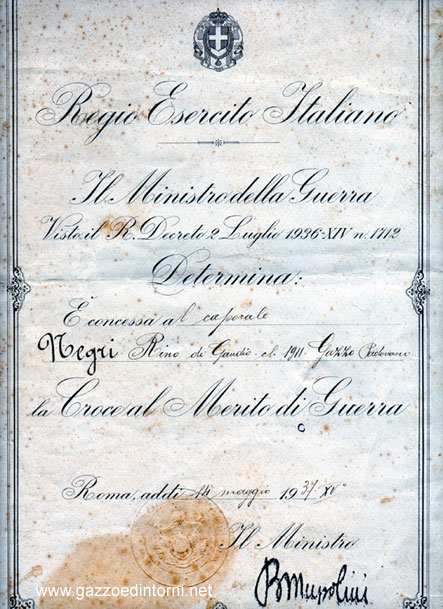 Regio Esercito Italiano
Il Ministro della Guerra
Visto il R. Decreto 2 Luglio 1936-XIV n. 1712
Determina:
È concessa al caporale
Negri Rino di Gaudio cl. 1911 Gazzo Padovano
la Croce al Merito di Guerra
Roma, addì 14 maggio 1937 XV°
Il Ministro
BMussolini
www.gazzoedintorni.net